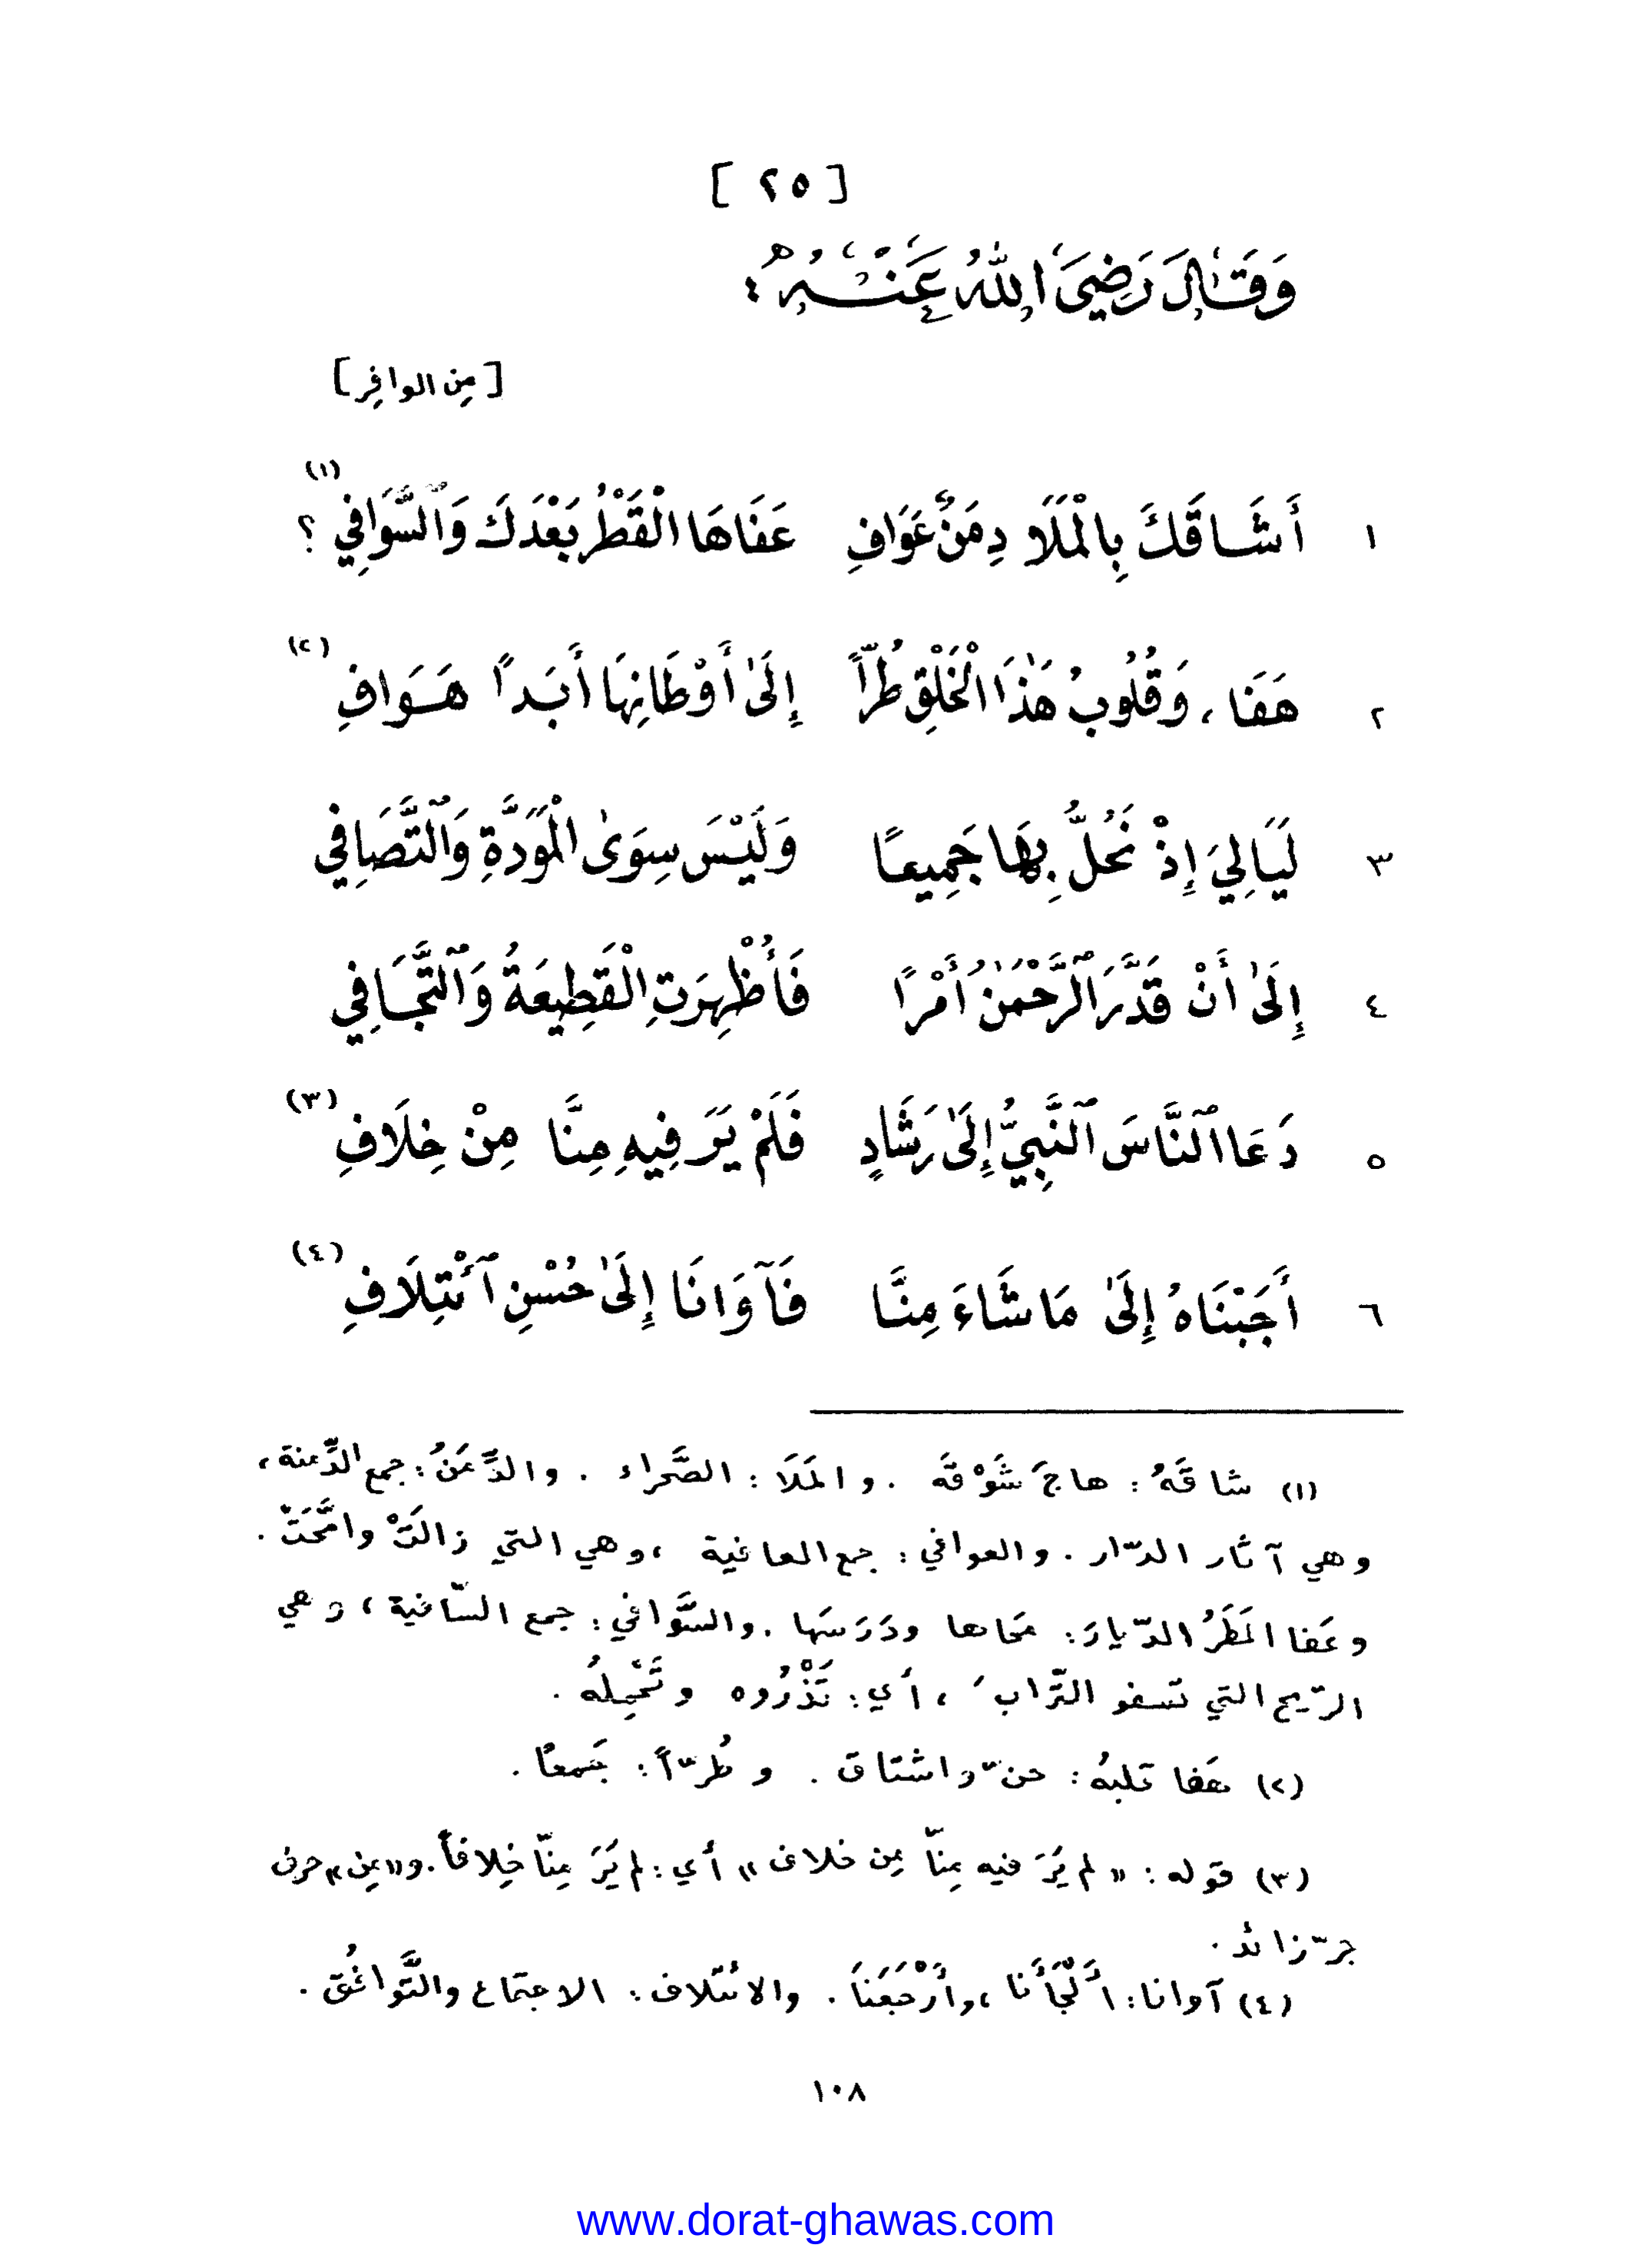 [ ٢٥ ]
وَقَالَ رَضِيَ اللهُ عَنْهُ :
[مِن الوافِر]
١ أَشَاقَكَ بِالْمَلَا دِمَنٌ عَوَافِ عَفَاهَا الْقَطْرُ بَعْدَكَ وَٱلسَّوَافِي ؟ (١)
٢ هَفَا ، وَقُلُوبُ هَٰذَا الْخَلْقِ طُرّاً إِلَىٰ أَوْطَانِهَا أَبَداً هَوَافِ (٢)
٣ لَيَالِيَ إِذْ نَحُلُّ بِهَا جَمِيعًا وَلَيْسَ سِوَىٰ الْمَوَدَّةِ وَٱلتَّصَافِي
٤ إِلَىٰ أَنْ قَدَّرَ ٱلرَّحْمَٰنُ أَمْرًا فَأُظْهِرَتِ الْقَطِيعَةُ وَٱلتَّجَافِي
٥ دَعَا ٱلنَّاسَ ٱلنَّبِيُّ إِلَىٰ رَشَادٍ فَلَمْ يَرَ فِيهِ مِنَّا مِنْ خِلَافِ (٣)
٦ أَجَبْنَاهُ إِلَىٰ مَا شَاءَ مِنَّا فَآوَانَا إِلَىٰ حُسْنِ ٱئْتِلَافِ (٤)
(١) شاقَهُ : هاجَ شَوْقَه . والمَلَا : الصَّحراء . والدِّمَنُ : جمع الدِّمنة ،
وهي آثار الدّار . والعوافي : جمع العافية ، وهي التي زالَتْ وامَّحَتْ .
وعَفا المَطَرُ الدّيارَ : مَحاها ودَرَسَها . والسَّوافي : جمع السّافية ، وهي
الرّيح التي تسفو التّرابَ ، أي : تَذْرُوه وتَحْمِلهُ .
(٢) هَفا قلبهُ : حنّ واشتاق . وطُرّاً : جَمعًا .
(٣) قوله : « لم يَرَ فيه مِنّا مِن خلاف » أي : لم يَرَ مِنّا خِلافاً . و«مِن» حرف
جرّ زائد .
(٤) آوانا : أَلْجَأَنا ، وأَرْجَعَنا . والائتلاف : الاجتماع والتَّوافُق .
١٠٨
www.dorat-ghawas.com